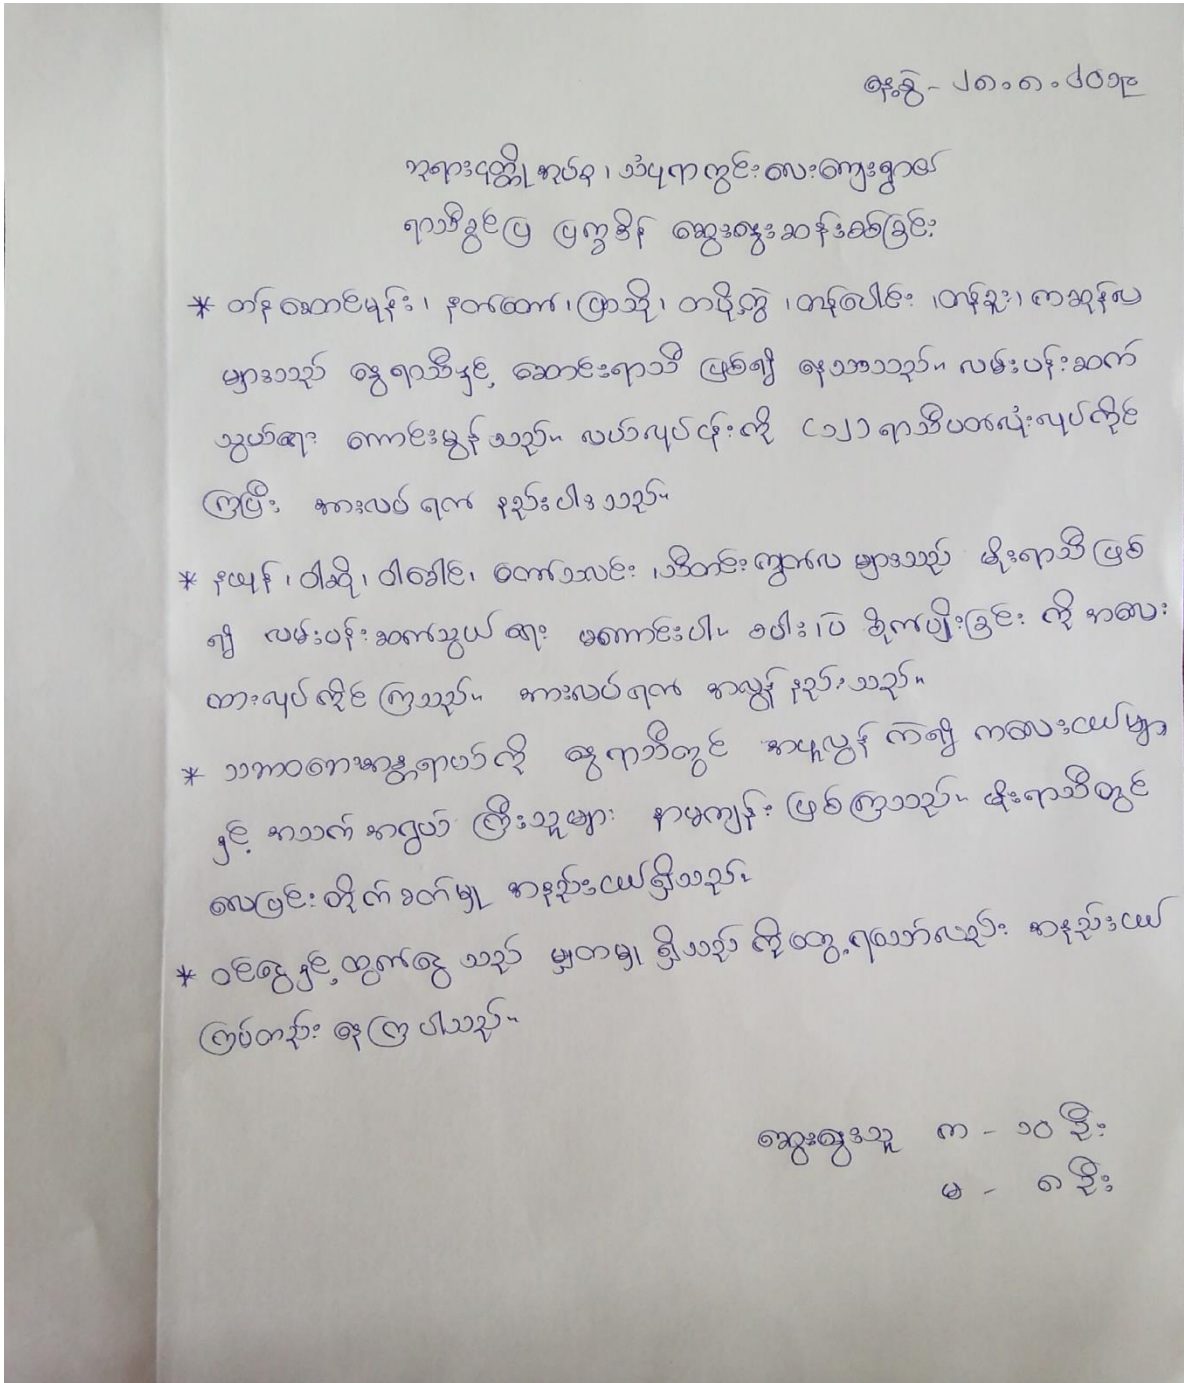 နေ့စွဲ - ၂၈.၈.၂၀၁၉
ဘုရားငုတ္တိုအုပ်စု၊ သံပုရာကွင်းလေးကျေးရွာ၏
ရာသီခွင်ပြ ပြက္ခဒိန် ဆွေးနွေးဆန်းစစ်ခြင်း
* တန်ဆောင်မုန်း၊ နတ်တော်၊ ပြာသို၊ တပို့တွဲ၊ တပေါင်း၊ တန်ခူး၊ ကဆုန်လ
များသည် နွေရာသီနှင့် ဆောင်းရာသီ ဖြစ်၍ နေသာသည်။ လမ်းပန်းဆက်
သွယ်ရေး ကောင်းမွန်သည်။ လယ်လုပ်ငန်းကို (၁၂) ရာသီပတ်လုံးလုပ်ကိုင်
ကြပြီး အားလပ်ရက် နည်းပါးသည်။
* နယုန်၊ ဝါဆို၊ ဝါခေါင်၊ တော်သလင်း၊ သီတင်းကျွတ်လ များသည် မိုးရာသီ ဖြစ်
၍ လမ်းပန်းဆက်သွယ်ရေး မကောင်းပါ။ စပါး၊ ပဲ စိုက်ပျိုးခြင်း ကို အလေး
ထားလုပ်ကိုင်ကြသည်။ အားလပ်ရက် အလွန်နည်းသည်။
* သဘာဝဘေးအန္တရာယ်ကို နွေရာသီတွင် အပူလွန်ကဲ၍ ကလေးငယ်များ
နှင့် အသက်အရွယ် ကြီးသူများ နာမကျန်း ဖြစ်ကြသည်။ မိုးရာသီတွင်
လေပြင်းတိုက်ခတ်မှု အနည်းငယ်ရှိသည်။
* ဝင်ငွေနှင့် ထွက်ငွေ သည် မျှတမှု ရှိသည် ကိုတွေ့ရသော်လည်း အနည်းငယ်
ကြပ်တည်း နေကြပါသည်။
ဆွေးနွေးသူ က - ၁၀ ဦး
မ - ၈ ဦး